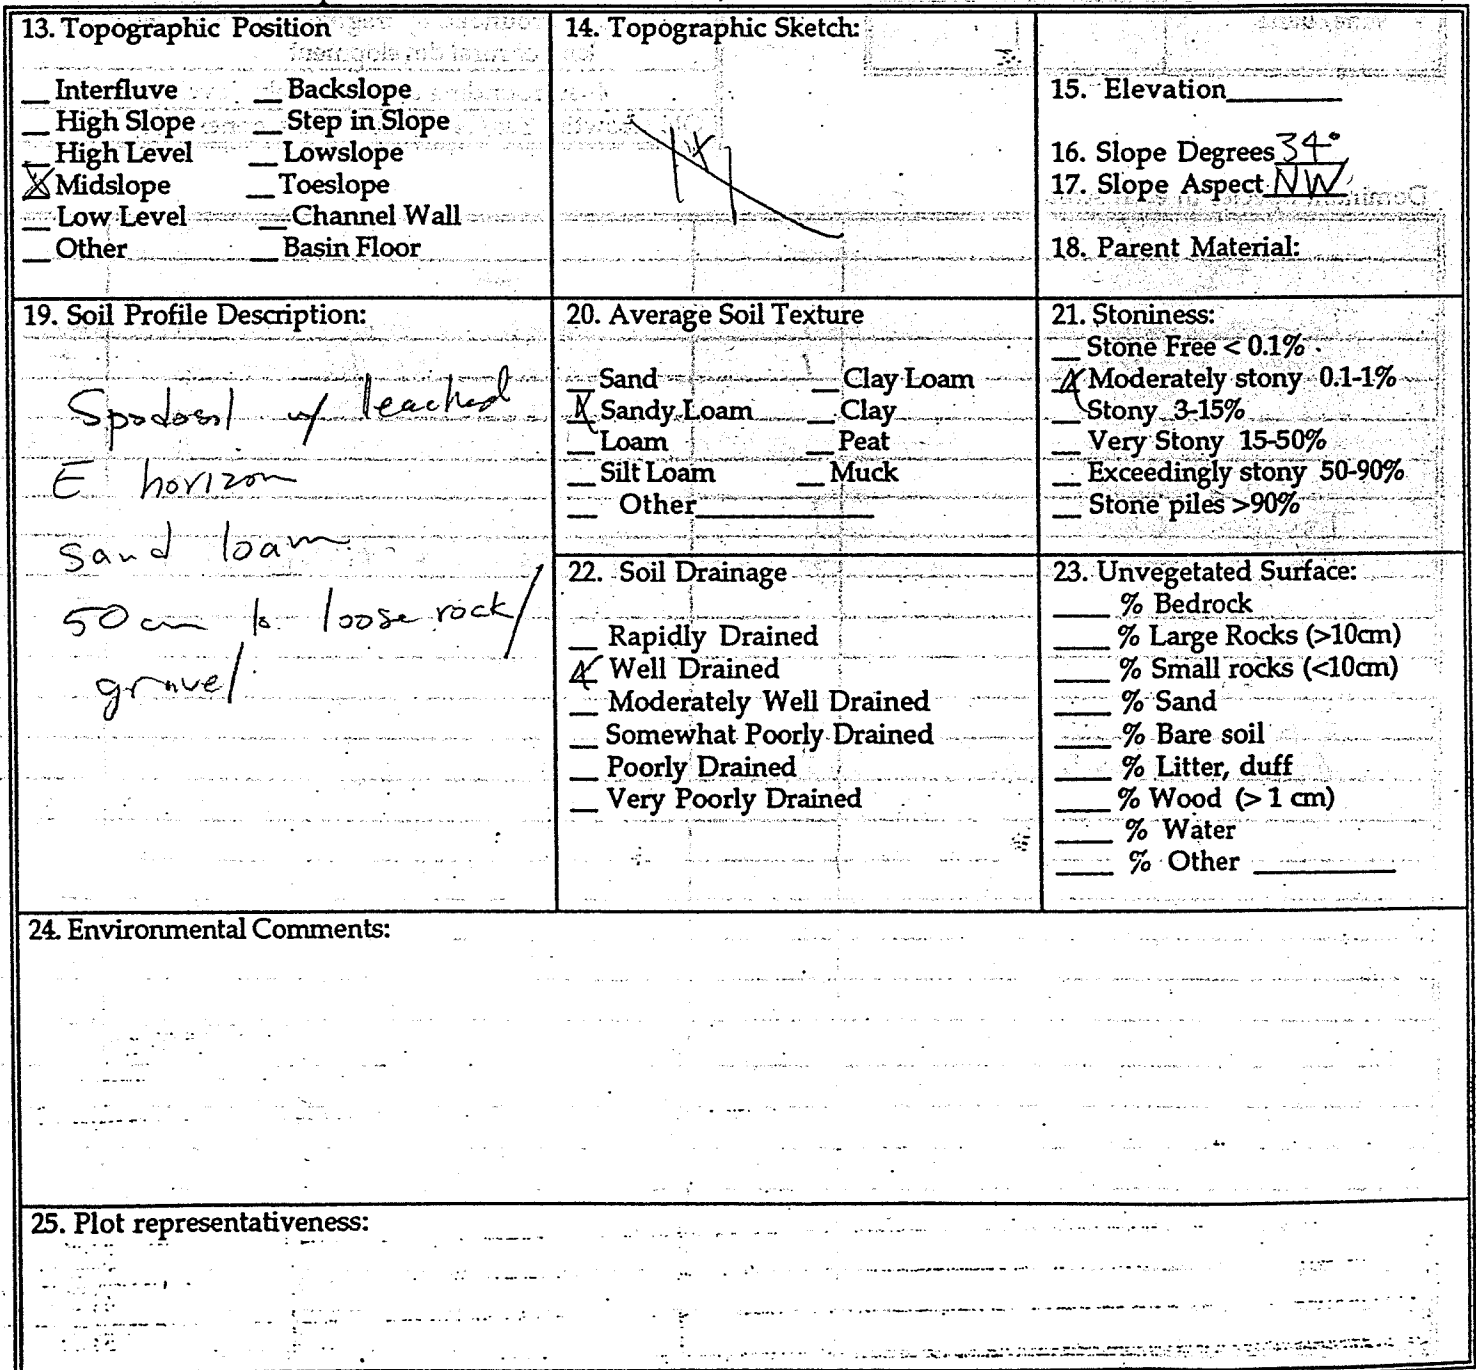 13. Topographic Position
__ Interfluve __ Backslope
__ High Slope __ Step in Slope
__ High Level __ Lowslope
X Midslope __ Toeslope
__ Low Level __ Channel Wall
__ Other __ Basin Floor
14. Topographic Sketch:
X
15. Elevation________
16. Slope Degrees 34°
17. Slope Aspect NW
18. Parent Material:
19. Soil Profile Description:
Spodosol w/ leached
E horizon
sand loam
50 cm to loose rock/
gravel
20. Average Soil Texture
__ Sand __ Clay Loam
X Sandy Loam __ Clay
__ Loam __ Peat
__ Silt Loam __ Muck
__ Other____________
21. Stoniness:
__ Stone Free < 0.1%
X Moderately stony 0.1-1%
__ Stony 3-15%
__ Very Stony 15-50%
__ Exceedingly stony 50-90%
__ Stone piles >90%
22. Soil Drainage
__ Rapidly Drained
X Well Drained
__ Moderately Well Drained
__ Somewhat Poorly Drained
__ Poorly Drained
__ Very Poorly Drained
23. Unvegetated Surface:
____ % Bedrock
____ % Large Rocks (>10cm)
____ % Small rocks (<10cm)
____ % Sand
____ % Bare soil
____ % Litter, duff
____ % Wood (> 1 cm)
____ % Water
____ % Other __________
24. Environmental Comments:
25. Plot representativeness: